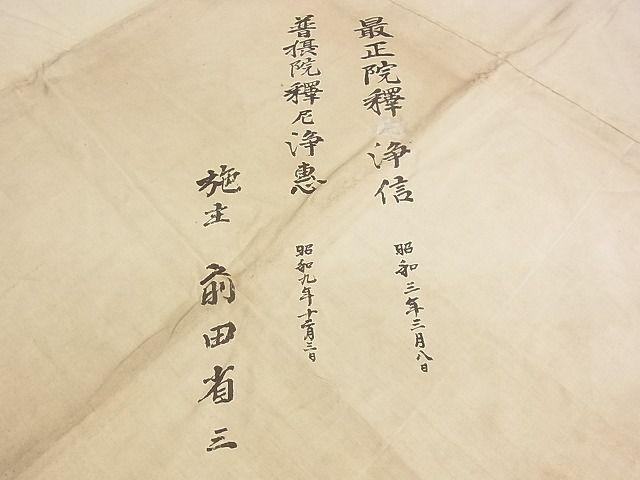 最正院釋浄信
昭和三年三月八日
普摂院釋尼浄惠
昭和九年十二月三日
施主 前田省三